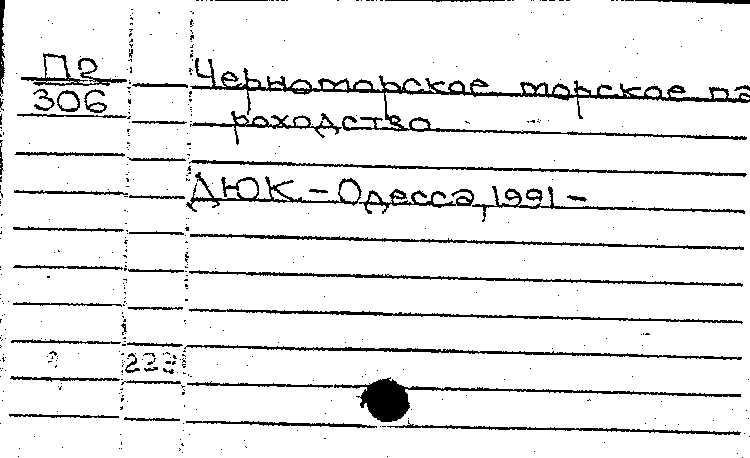 П2
306
Черноморское морское па
роходство
ДЮК. – Одесса, 1991 –